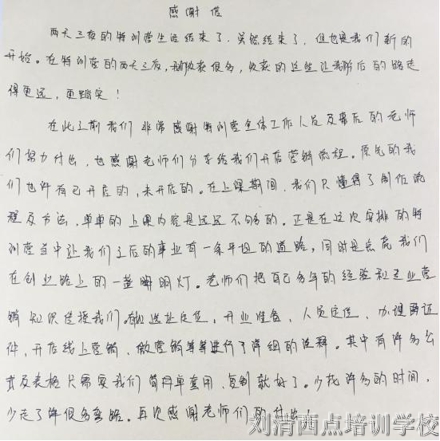 感谢信
两天三夜的特训营生活结束了，虽然结束了，但也是我们新的
开始。在特训营的两天三夜，我收获很多，收获的这些让我今后的路走
得更远，更踏实！
在此之前我们非常感谢特训营全体工作人员及幕后的老师
们努力付出，也感谢老师们分享给我们开店营销流程。
们也许有已开店的，未开店的。在上课期间，我们只懂得了制作流
程及方法，单单的上课内容是远远不够的。正是在这次安排的特
训营当中让我们之后的事业有一条平坦的道路，同时是点亮我们
在创业路上的一盏明灯。老师们把自己多年的经验和专业营
销知识传授我们。从选址定位，开业准备，人员定位，办理解证
件，开店线上营销，微营销等等进行了详细的诠释。其中有许多公
式及表格只需要我们简简单单套用，复制就好了。少花许多的时间，
少走了许很多弯路。再次感谢老师们的付出！
刘清西点培训学校